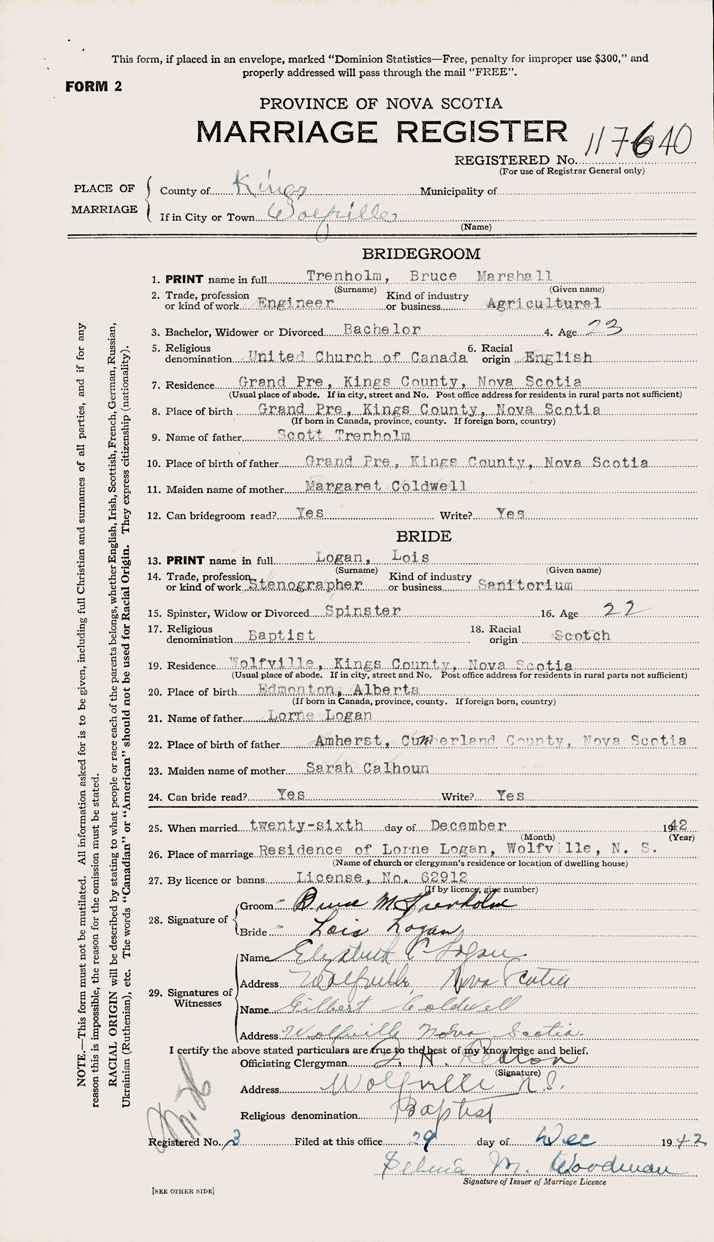 This form, if placed in an envelope, marked "Dominion Statistics—Free, penalty for improper use $300," and
properly addressed will pass through the mail "FREE".
FORM 2
PROVINCE OF NOVA SCOTIA
MARRIAGE REGISTER
REGISTERED No. 117640
(For use of Registrar General only)
PLACE OF MARRIAGE
County of Kings Municipality of
If in City or Town Wolfville
(Name)
BRIDEGROOM
1. PRINT name in full Trenholm, Bruce Marshall
(Surname) (Given name)
2. Trade, profession or kind of work Engineer Kind of industry or business Agricultural
3. Bachelor, Widower or Divorced Bachelor 4. Age 23
5. Religious denomination United Church of Canada 6. Racial origin English
7. Residence Grand Pre, Kings County, Nova Scotia
(Usual place of abode. If in city, street and No. Post office address for residents in rural parts not sufficient)
8. Place of birth Grand Pre, Kings County, Nova Scotia
(If born in Canada, province, county. If foreign born, country)
9. Name of father Scott Trenholm
10. Place of birth of father Grand Pre, Kings County, Nova Scotia
11. Maiden name of mother Margaret Coldwell
12. Can bridegroom read? Yes Write? Yes
BRIDE
13. PRINT name in full Logan, Lois
(Surname) (Given name)
14. Trade, profession or kind of work Stenographer Kind of industry or business Sanitorium
15. Spinster, Widow or Divorced Spinster 16. Age 22
17. Religious denomination Baptist 18. Racial origin Scotch
19. Residence Wolfville, Kings County, Nova Scotia
(Usual place of abode. If in city, street and No. Post office address for residents in rural parts not sufficient)
20. Place of birth Edmonton, Alberta
(If born in Canada, province, county. If foreign born, country)
21. Name of father Lorne Logan
22. Place of birth of father Amherst, Cumberland County, Nova Scotia
23. Maiden name of mother Sarah Calhoun
24. Can bride read? Yes Write? Yes
25. When married twenty-sixth day of December 1942
(Month) (Year)
26. Place of marriage Residence of Lorne Logan, Wolfville, N. S.
(Name of church or clergyman's residence or location of dwelling house)
27. By licence or banns License, No. 62912
(If by licence, give number)
28. Signature of
Groom Bruce M. Trenholm
Bride Lois Logan
29. Signatures of Witnesses
Name Elizabeth C Logan
Address Wolfville, Nova Scotia
Name Gilbert Coldwell
Address Wolfville Nova Scotia.
I certify the above stated particulars are true to the best of my knowledge and belief.
Officiating Clergyman
(Signature)
Address Wolfville N.S.
Religious denomination Baptist
Registered No. 3 Filed at this office 29 day of Dec 1942
Selina M. Woodman
Signature of Issuer of Marriage Licence
[SEE OTHER SIDE]
NOTE.—This form must not be mutilated. All information asked for is to be given, including full Christian and surnames of all parties, and if for any
reason this is impossible, the reason for the omission must be stated.
RACIAL ORIGIN will be described by stating to what people or race each of the parents belongs, whether English, Irish, Scottish, French, German, Russian,
Ukrainian (Ruthenian), etc. The words "Canadian" or "American" should not be used for Racial Origin. They express citizenship (nationality).